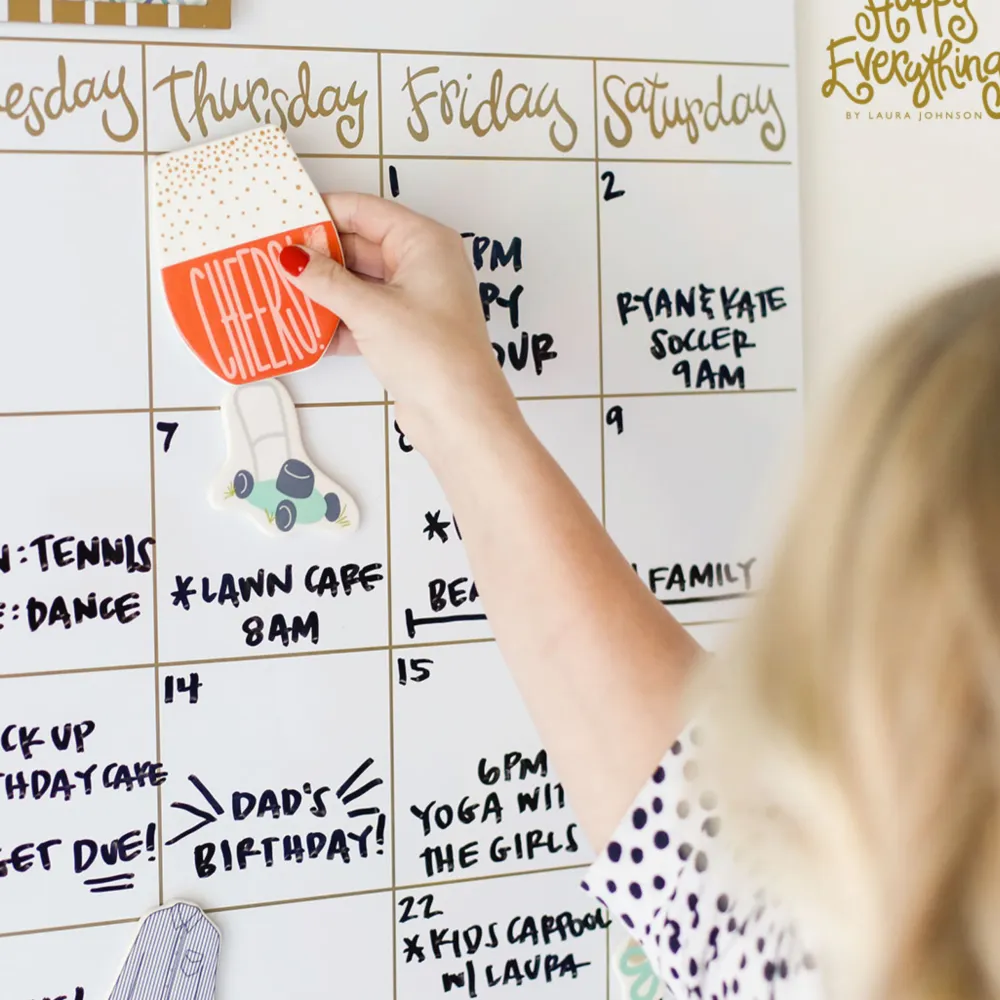 Happy
Everything
BY LAURA JOHNSON
Thursday
Friday
Saturday
CHEERS!
1
PM
2
RYAN & KATE
SOCCER
9AM
TENNIS
DANCE
7
*LAWN CARE
8AM
8
*
9
FAMILY
UP
CAKE
DUE!
14
DAD'S
BIRTHDAY!
15
6PM
YOGA
THE GIRLS
22
*KIDS CARPOOL
W/ LAURA